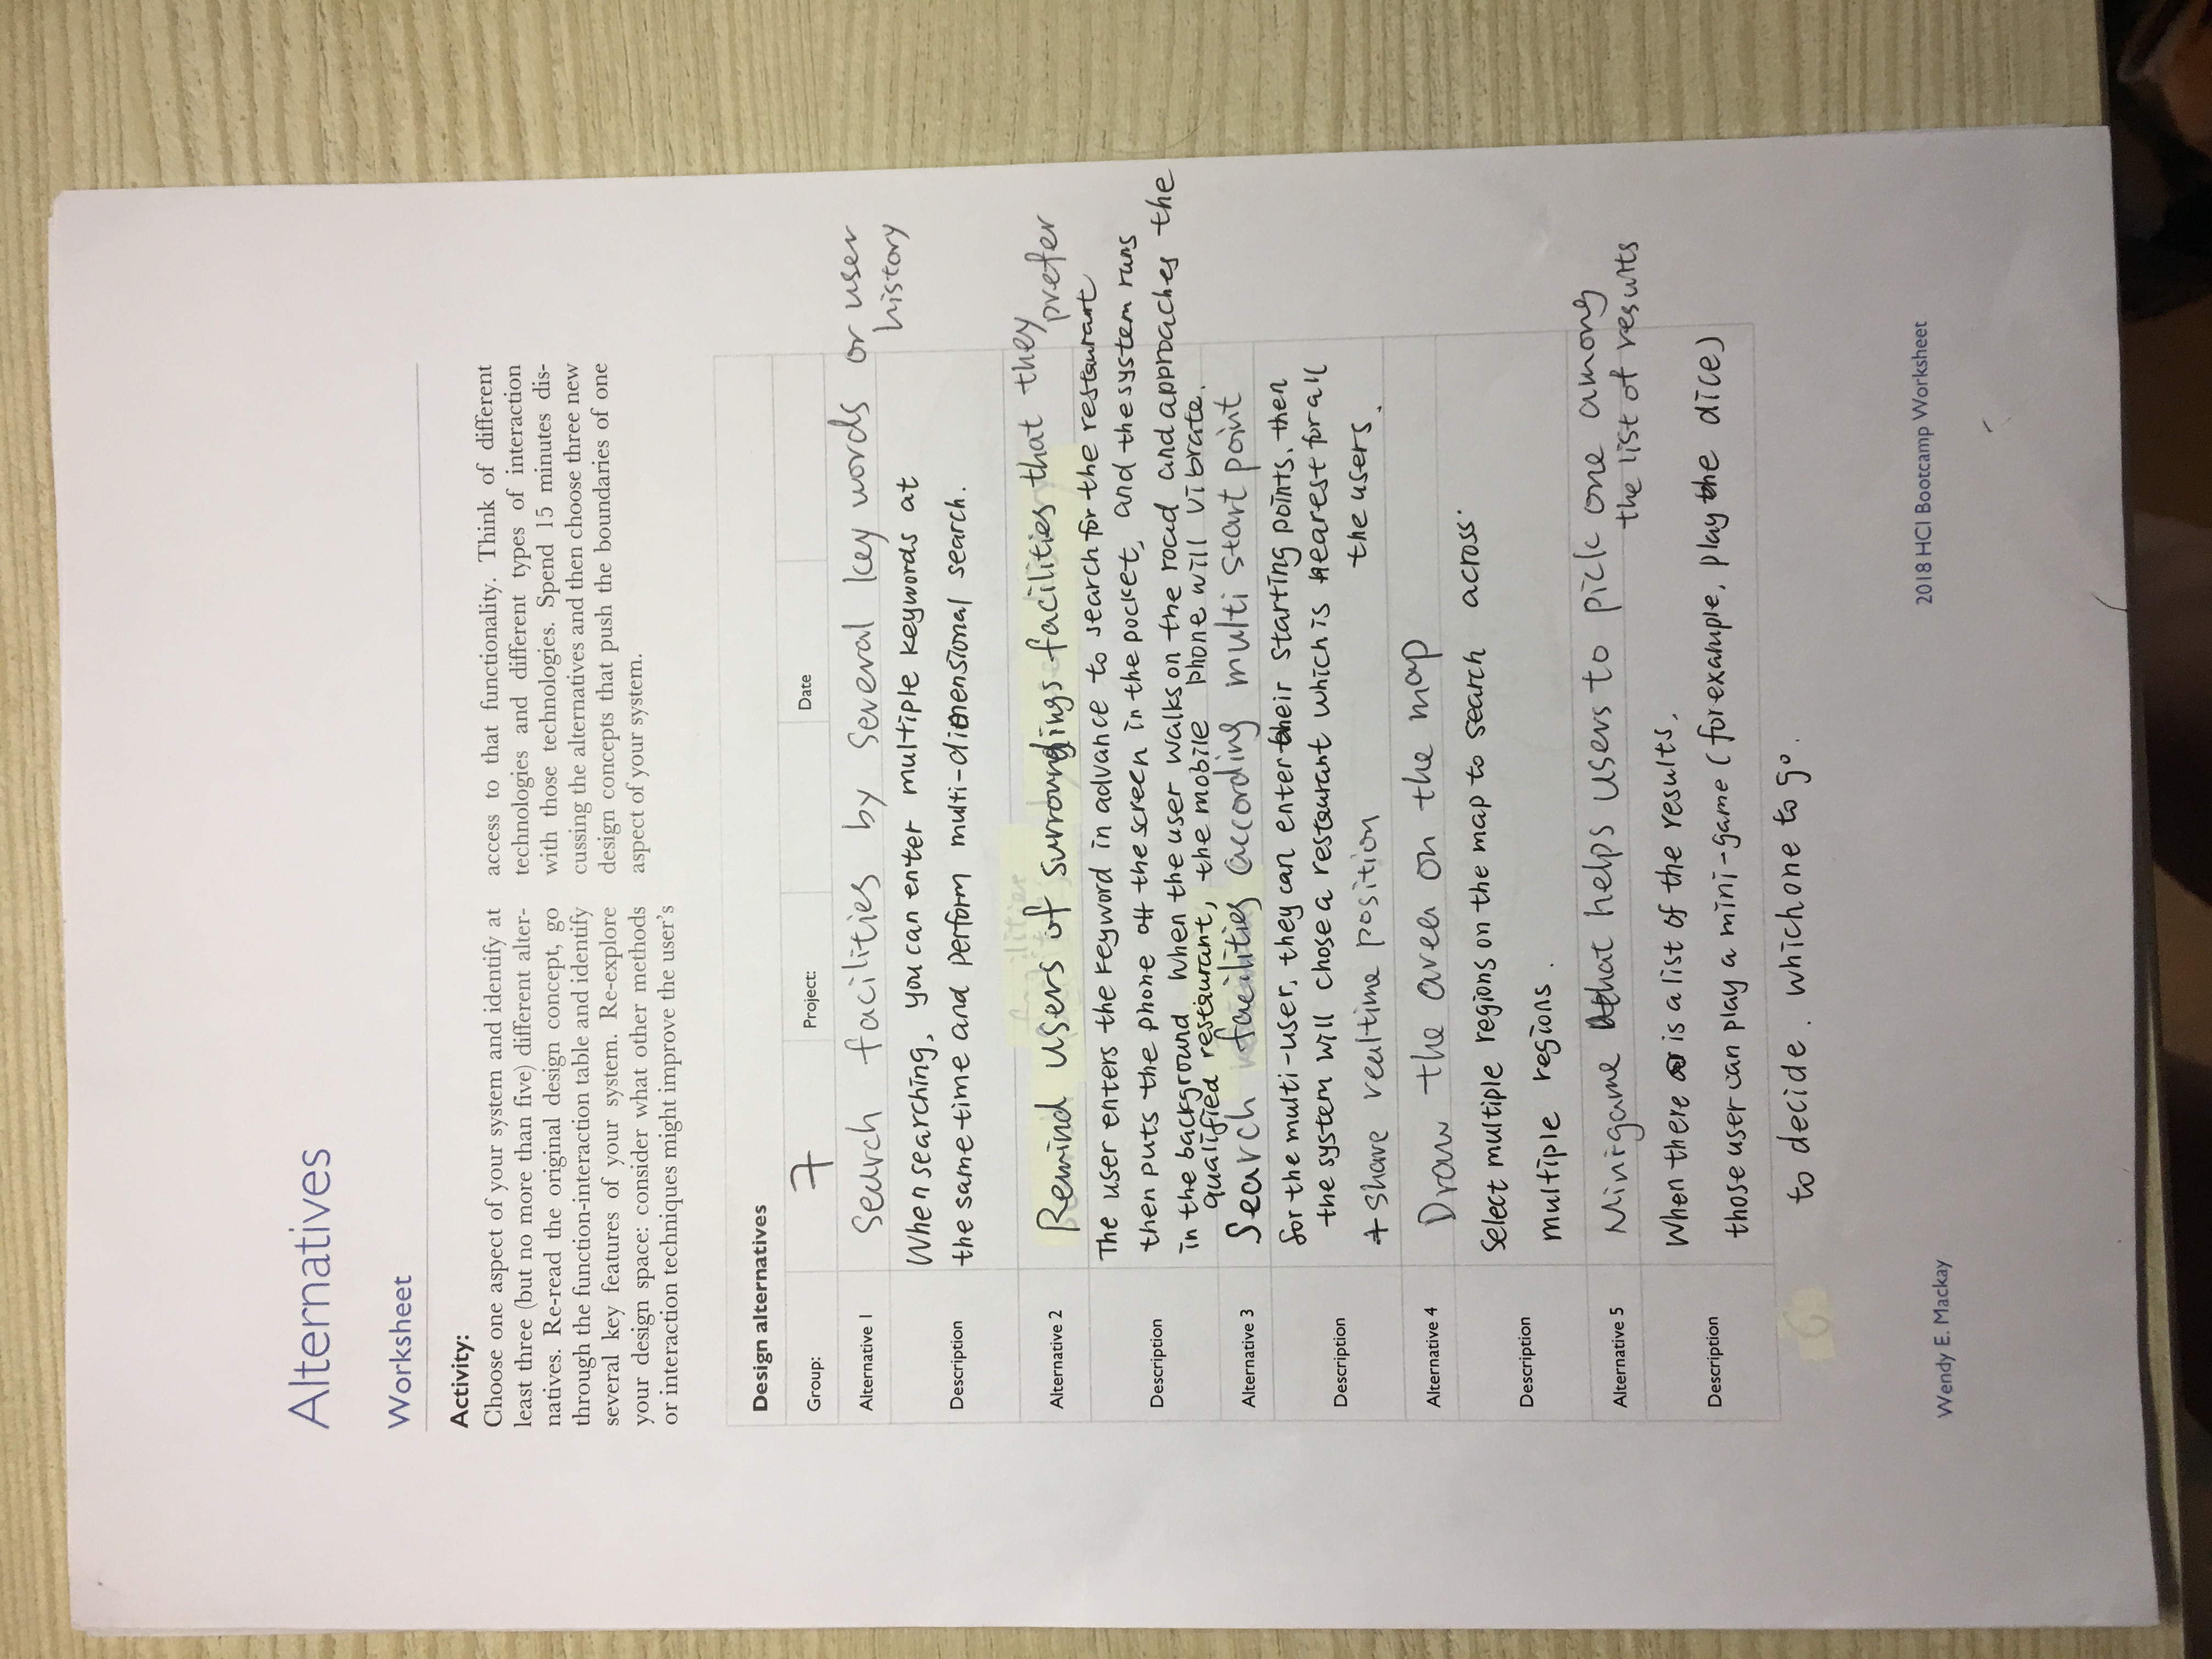 Alternatives
Worksheet
Activity:
Choose one aspect of your system and identify at
least three (but no more than five) different alter-
natives. Re-read the original design concept, go
through the function-interaction table and identify
several key features of your system. Re-explore
your design space: consider what other methods
or interaction techniques might improve the user's
access to that functionality. Think of different
technologies and different types of interaction
with those technologies. Spend 15 minutes dis-
cussing the alternatives and then choose three new
design concepts that push the boundaries of one
aspect of your system.
Design alternatives
Group: 7 Project: Date
Alternative 1 Search facilities by several key words or user
history
Description
When searching, you can enter multiple keywords at
the same time and perform multi-dimensional search.
Alternative 2 Remind users of surroundings facilities that they
prefer
Description
The user enters the keyword in advance to search for the restaurant
then puts the phone off the screen in the pocket, and the system runs
in the background when the user walks on the road and approaches the
qualified restaurant, the mobile phone will vibrate.
Alternative 3 Search facilities according multi start point
Description
for the multi-user, they can enter their starting points, then
the system will chose a restaurant which is nearest for all
the users.
+ share realtime position
Alternative 4 Draw the area on the map
Description
Select multiple regions on the map to search across
multiple regions.
Alternative 5 Minigame that helps users to pick one among
the list of results
Description
When there is a list of the results,
those user can play a mini-game (for example, play the dice)
to decide. which one to go.
Wendy E. Mackay
2018 HCI Bootcamp Worksheet